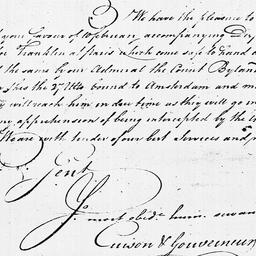 We have the pleasure to
your favour of 10th Ins accompanying
Dr Franklin at Paris which came safe to hand
the same by our Admiral the Count Byland
this the 27th Ulto bound to Amsterdam and
will reach him in due time as they will go in
any apprehension of being intercepted by the
We are with tender of our best Services and
Gent
Yr
most obedt. hum. servan
Curson & Gouverneur